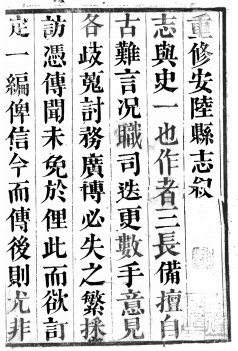 重修安陸縣志敘
志與史一也作者三長備擅自
古難言况職司迭更數手意見
各歧蒐討務廣博必失之繁採
訪憑傳聞未免於俚此而欲訂
定一編俾信今而傳後則尤非